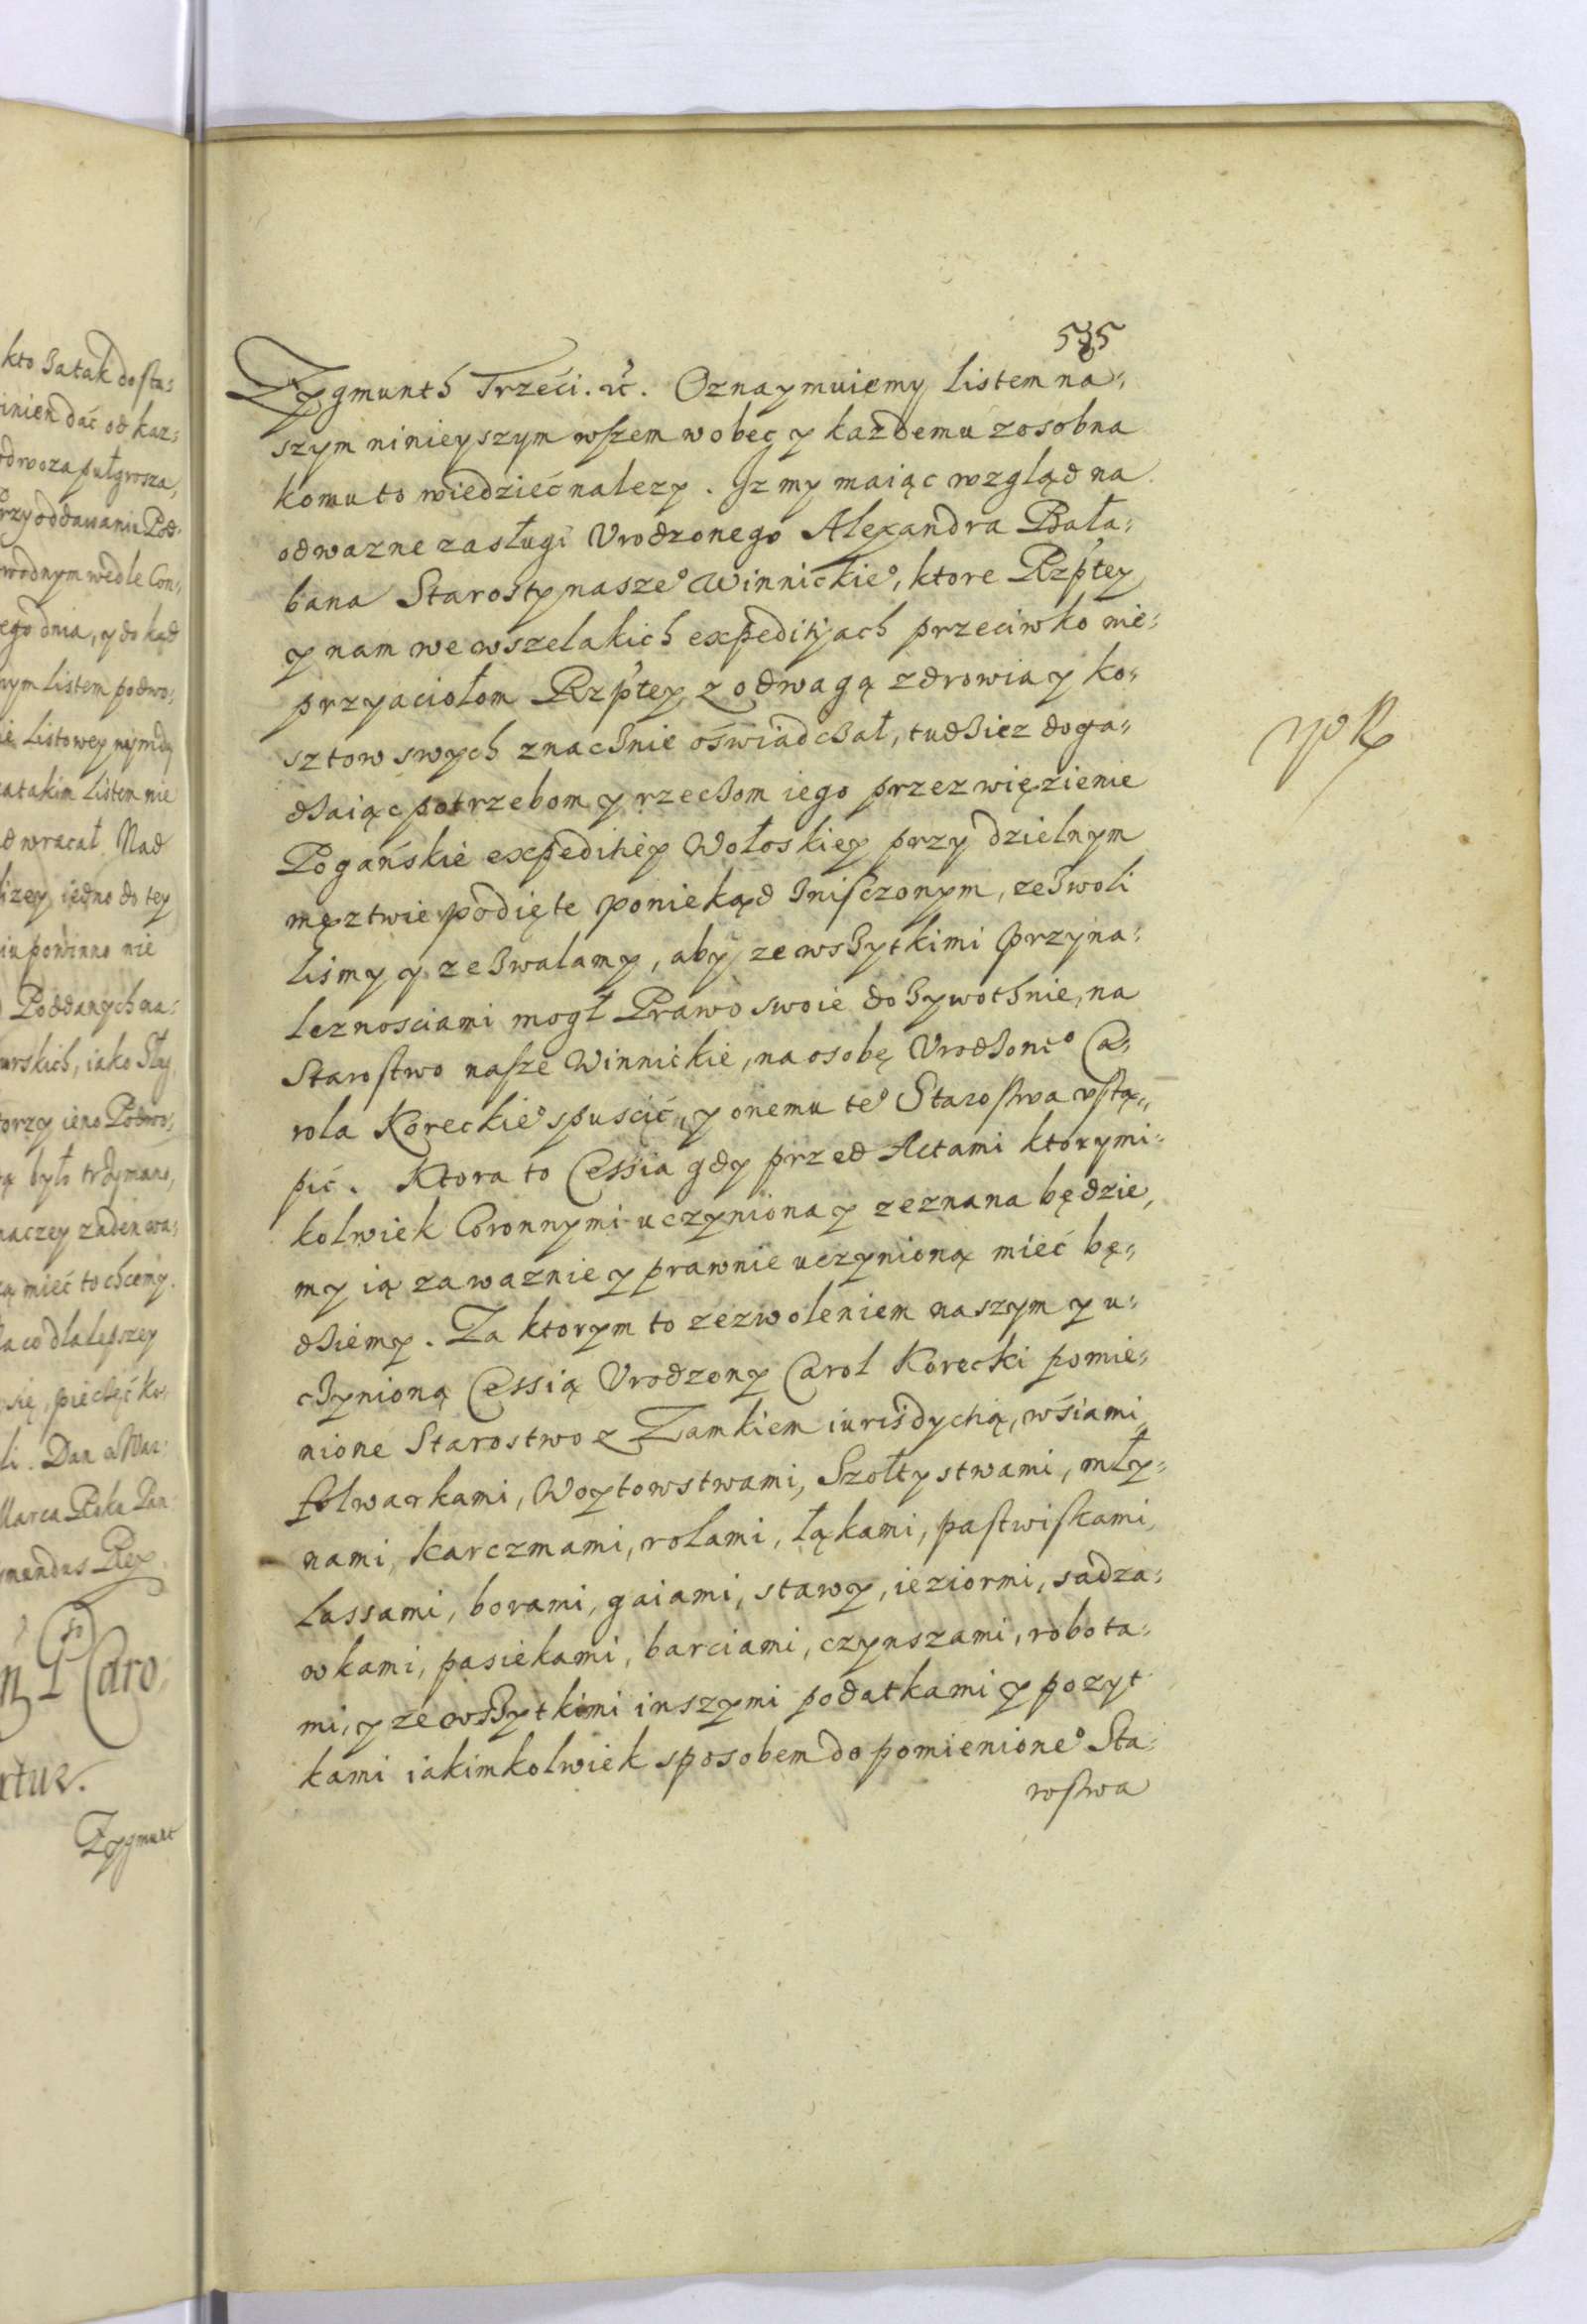 kto zatak dosta:
inien dać od kaz:
odwoza pułgrosza,
Przy oddawaniu Pod:
wodnym wedle Con:
ego dnia, y do kąd
nym listem podwo:
ie Listowey
zatakim listem nie
odwracał. Nad
lizey, iedno do tey
iu powinno nie
Poddanych na:
urskich, iako Sług
torzy ieno Podwo:
ą było trzymano,
naczey zaden wa:
ą mieć to chcemy.
Na co dla lepszey
się, pieczęć ko:
li. Dan w War:
Marca Roku Pan
mundus Rex
Caro:
rtur.
Zygmunt
535
Zygmunth Trzeci. etc. Oznaymuiemy listem na:
szym ninieyszym wszem wobec y kazdemu zosobna
komu to wiedzieć nalezy. Iz my maiąc wzgląd na
odwazne zasługi Vrodzonego Alexandra Bała:
bana Starosty nasze° Winnickie°, ktore Rzptey
y nam we wszelakich expeditijach przeciwko nie:
przyaciołom Rzptey z odwagą zdrowia y ko:
sztow swych znacznie oświadczał, tudziez doga:
dzaiąc potrzebom y rzeczom iego przez więzienie
Pogańskie expeditiey Wołoskiey przy dzielnym
męztwie podięte poniekąd zniszczonym, zezwoli
lismy y zezwalamy, aby ze wszytkimi przyna:
leznosciami mogł Prawo swoie dozywothnie, na
Starostwo nasze Winnickie, na osobę Vrodzone° Ca:
rola Koreckie° spuscić, y onemu te° Starostwa vstą:
pić. Ktora to Cessia gdy przed Actami ktorymi:
kolwiek Coronnymi uczyniona y zeznana będzie,
my ią za waznie y prawnie uczynioną mieć bę:
dziemy. Za ktorym to zezwoleniem naszym y u:
czynioną Cessią Vrodzony Carol Korecki pomie:
nione Starostwo z Zamkiem iurisdychą, wśiami
folwarkami, Woytowstwami, Szołtystwami, mły:
nami, karczmami, rolami, łąkami, pastwiskami,
lassami, borami, gaiami, stawy, ieziormi, sadza:
wkami, pasiekami, barciami, czynszami, robota:
mi, y ze wszytkimi inszymi podatkami y pozyt
kami iakimkolwiek sposobem do pomienione° Sta:
rostwa